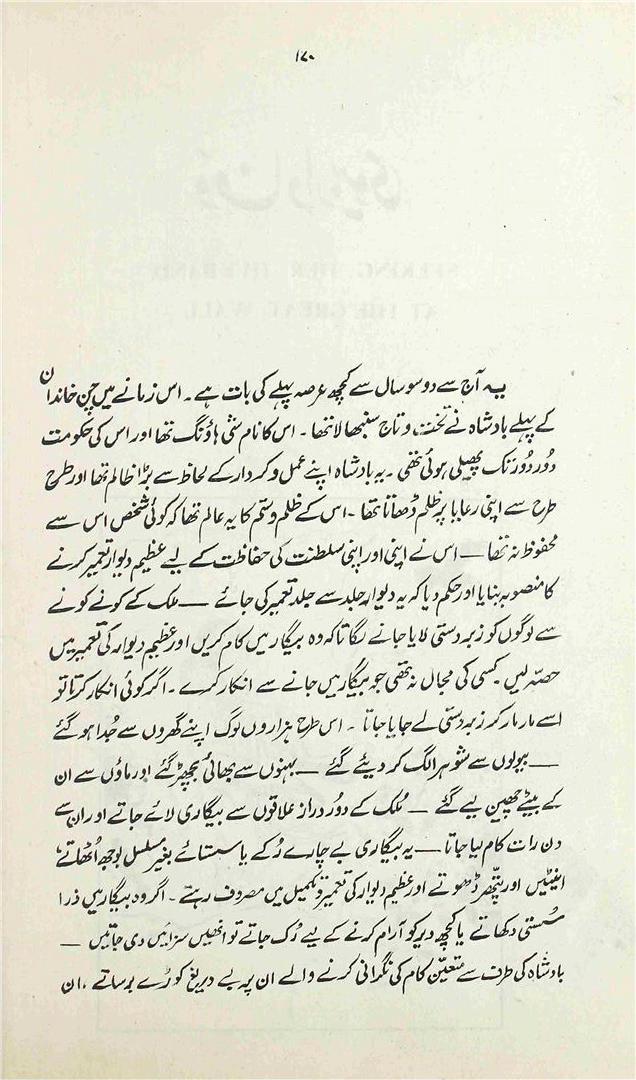 ۱۷۰
یہ آج سے دو سو سال سے کچھ عرصہ پہلے کی بات ہے۔ اس زمانے میں چن خاندان
کے پہلے بادشاہ نے تخت و تاج سنبھالا تھا۔ اس کا نام شی ہاؤنگ تھا اور اس کی حکومت
دور دور تک پھیلی ہوئی تھی۔ یہ بادشاہ اپنے عمل و کردار کے لحاظ سے بڑا ظالم تھا اور طرح
طرح سے اپنی رعایا پر ظلم ڈھاتا تھا۔ اس کے ظلم و ستم کا یہ عالم تھا کہ کوئی شخص اس سے
محفوظ نہ تھا — اس نے اپنی اور اپنی سلطنت کی حفاظت کے لیے عظیم دیوار تعمیر کرنے
کا منصوبہ بنایا اور حکم دیا کہ یہ دیوار جلد سے جلد تعمیر کی جائے — ملک کے کونے کونے
سے لوگوں کو زبردستی لایا جانے لگا تاکہ وہ بیگار میں کام کریں اور عظیم دیوار کی تعمیر میں
حصّہ لیں۔ کسی کی مجال نہ تھی جو بیگار میں جانے سے انکار کرے۔ اگر کوئی انکار کرتا تو
اسے مار مار کر زبردستی لے جایا جاتا۔ اس طرح ہزاروں لوگ اپنے گھروں سے جُدا ہو گئے
— بیویوں سے شوہر الگ کر دیئے گئے — بہنوں سے بھائی بچھڑ گئے اور ماؤں سے ان
کے بیٹے چھین لیے گئے — مُلک کے دور دراز علاقوں سے بیگاری لائے جاتے اور ان سے
دن رات کام لیا جاتا — یہ بیگاری بے چارے رُکے یا سستائے بغیر مسلسل بوجھ اُٹھاتے،
اینٹیں اور پتّھر ڈھوتے اور عظیم دیوار کی تعمیر و تکمیل میں مصروف رہتے۔ اگر وہ بیگار میں ذرا
سُستی دکھاتے یا کچھ دیر کو آرام کرنے کے لیے رُک جاتے تو انھیں سزائیں دی جاتیں —
بادشاہ کی طرف سے متعیّن کام کی نگرانی کرنے والے ان پر بے دریغ کوڑے برساتے، ان